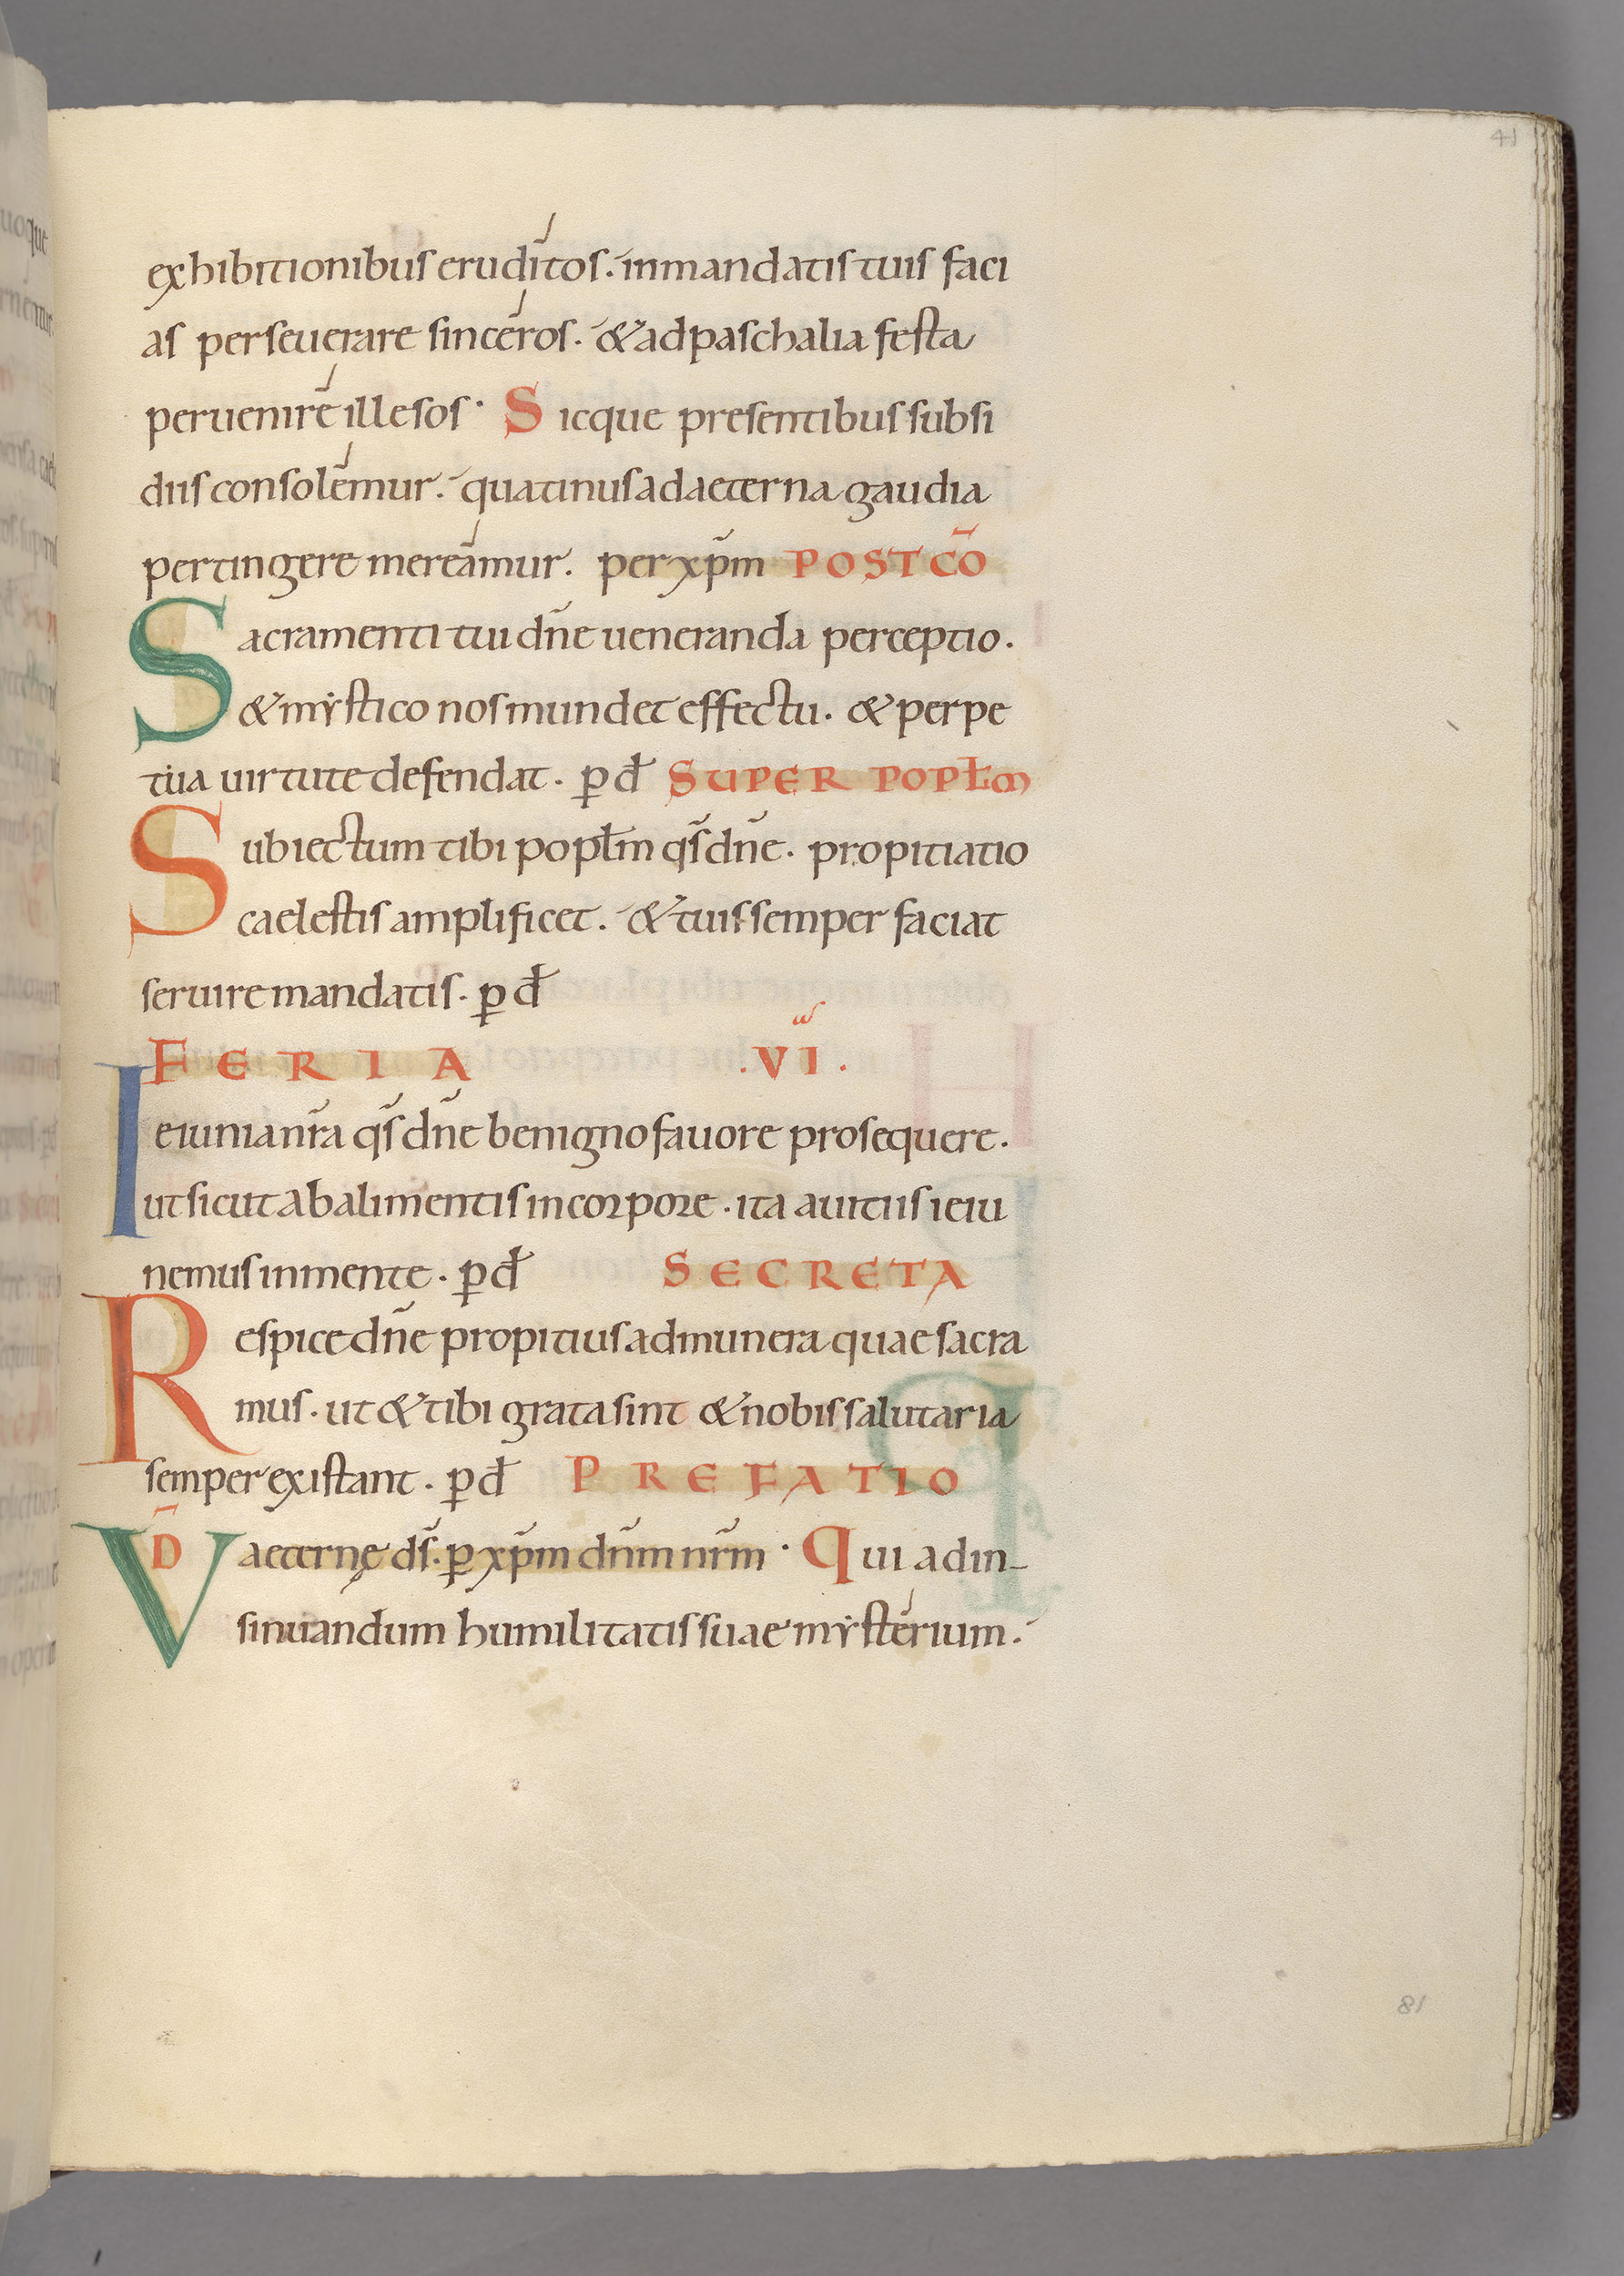 41
exhibitionibus eruditos. inmandatis tuis faci
as perseuerare sinceros. & ad paschalia festa
peruenire illesos. Sicque presentibus subsi
diis consolemur. quatinus ad aeterna gaudia
pertingere mereamur. per xp̄m POST CŌ
Sacramenti tui dn̄e ueneranda perceptio.
& mẏstico nos mundet effectu. & perpe
tua uirtute defendat. p d̄ SUPER POPŁM
Subiectum tibi popłm qs̄ dn̄e. propitiatio
caelestis amplificet. & tuis semper faciat
seruire mandatis. p d̄
FERIA .VI.
Ieiunia nr̄a qs̄ dn̄e benigno fauore prosequere.
ut sicut ab alimentis in corpore. ita a uitiis ieiu
nemus in mente. p d̄ SECRETA
Respice dn̄e propitius ad munera quae sacra
mus. ut & tibi grata sint & nobis salutaria
semper existant. p d̄ PREFATIO
VD̄ aeternę ds̄. p xp̄m dn̄m nr̄m. Qui ad in-
sinuandum humilitatis suae mẏsterium.
81